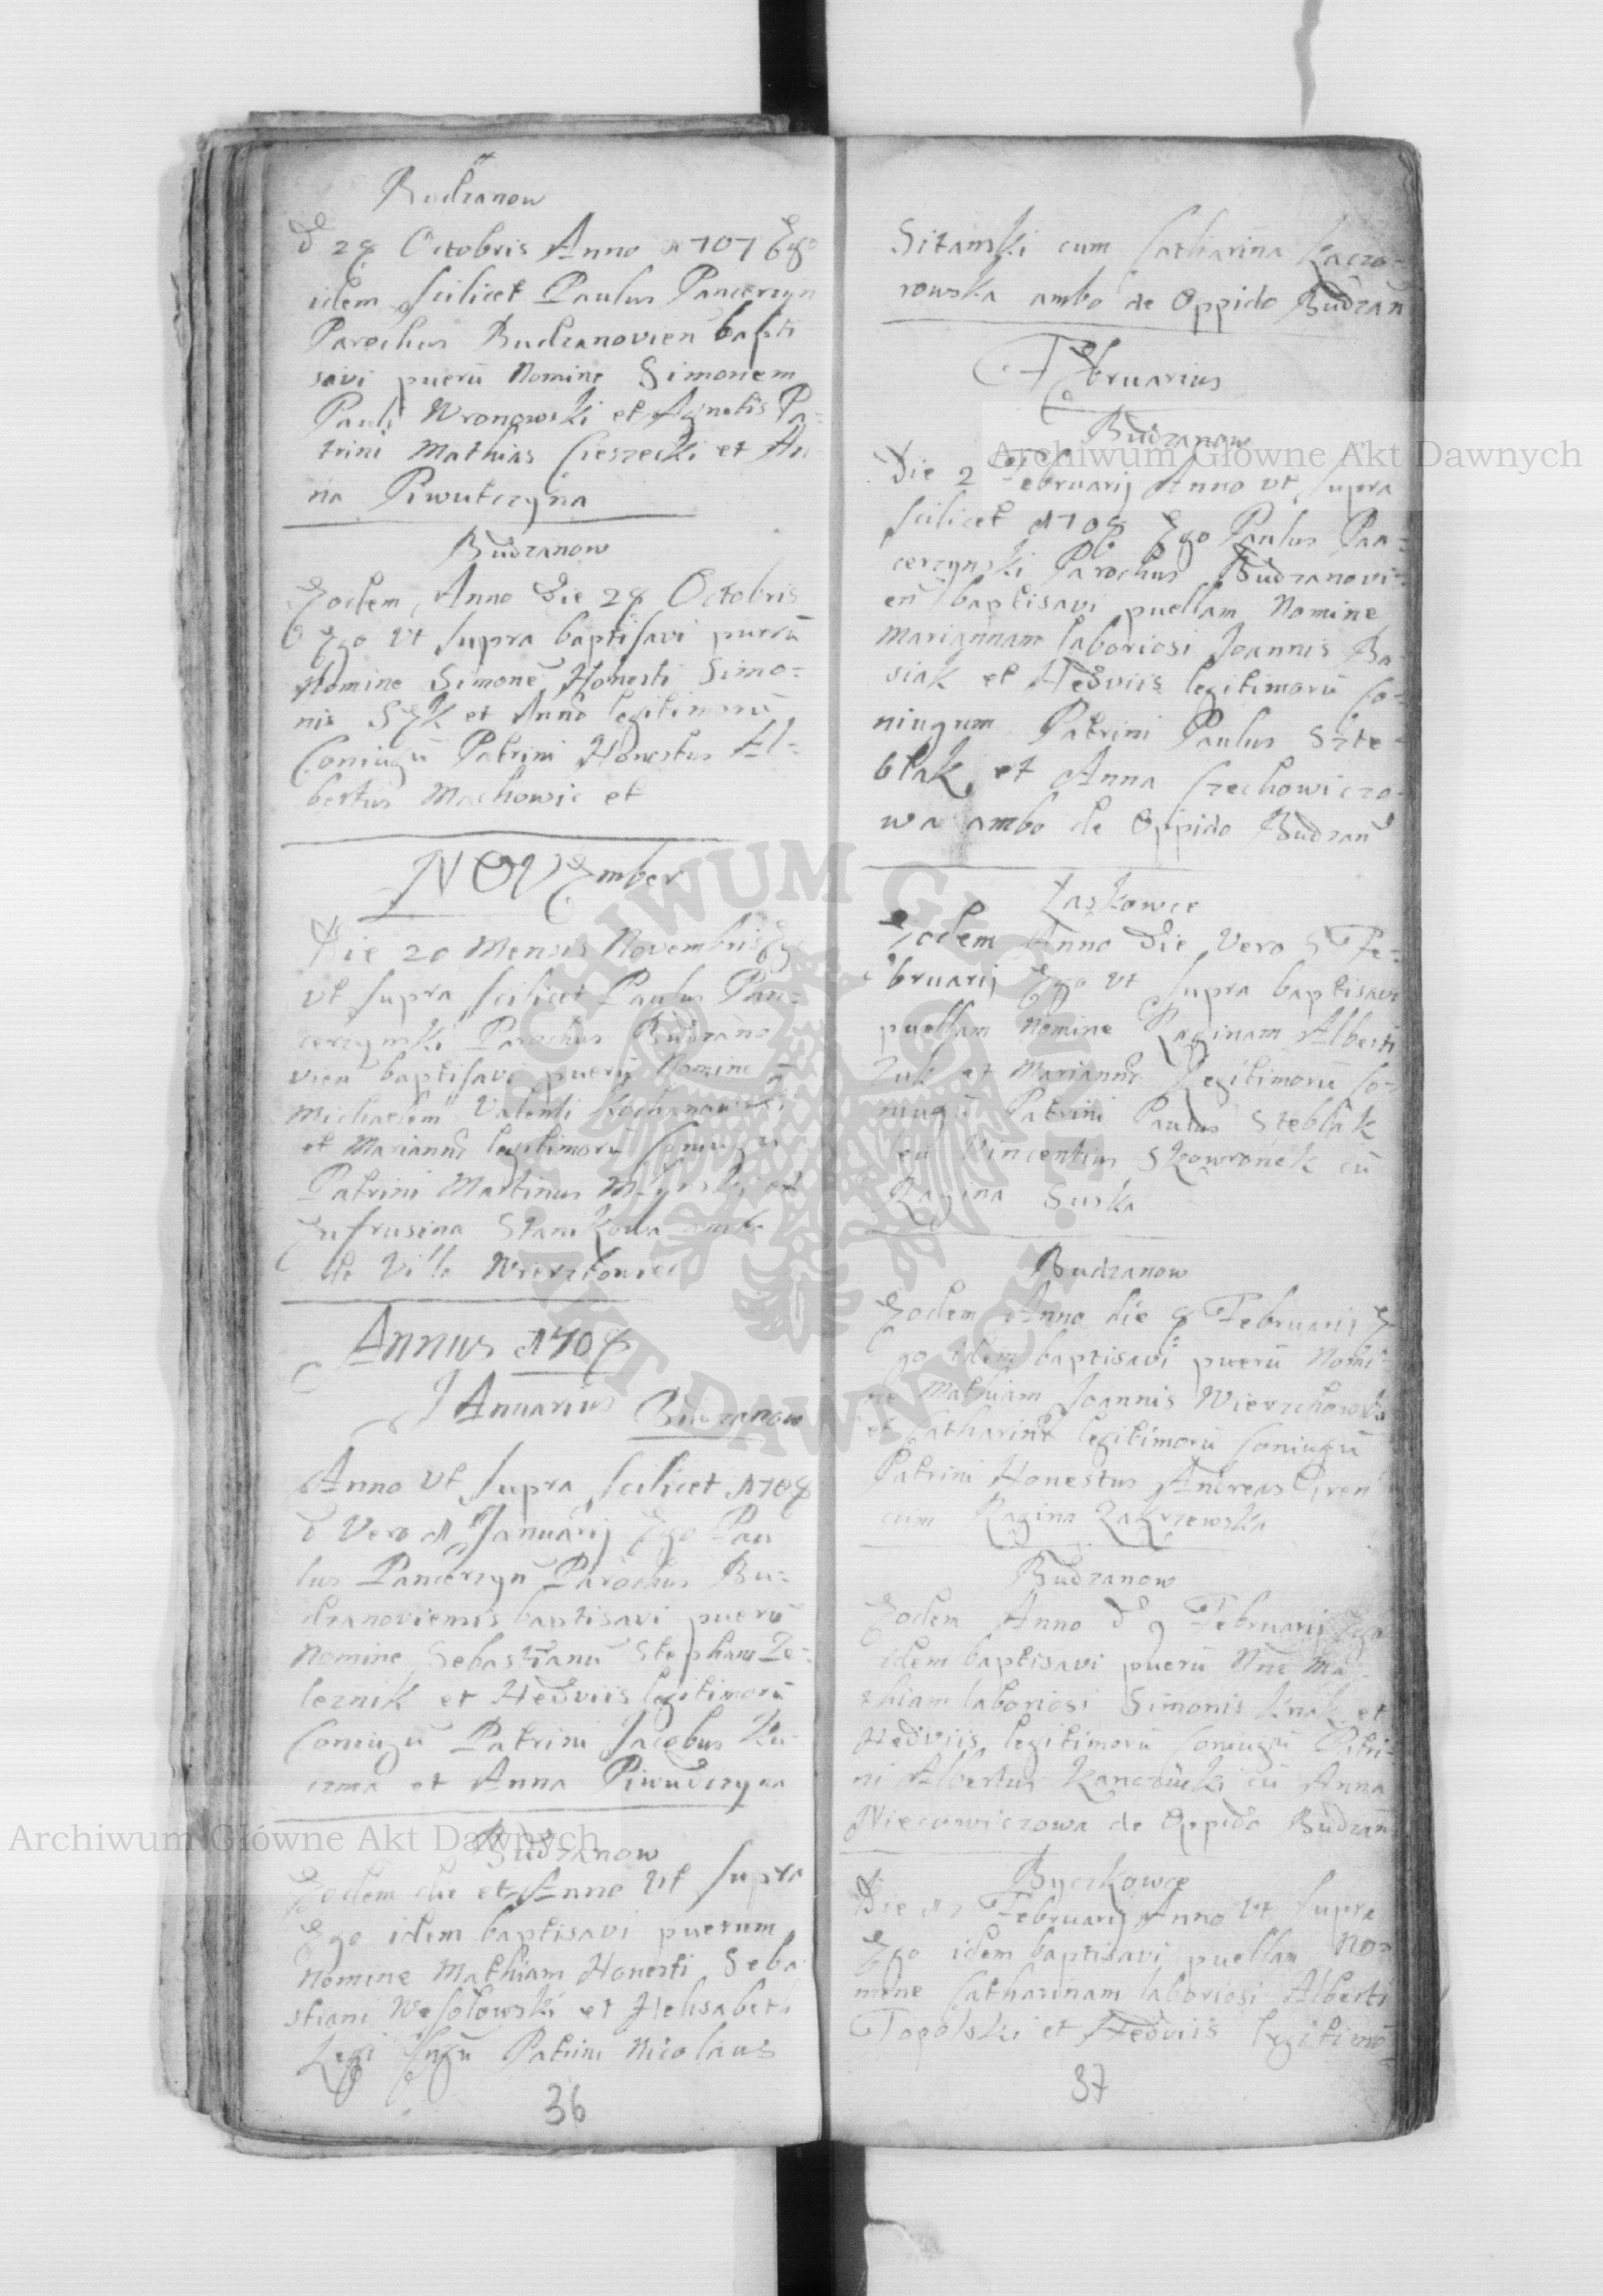 Budzanow
d 28 Octobris Anno 1707 Ego
idem scilicet Paulus Pancerzyn
Parochus Budzanovien bapti
savi pueru Nomine Simonem
Pauli Wronowski et Agnetis Pa=
trini Mathias Cieszecki et An
na Piwutczyna
Budzanow
Eodem Anno Die 28 Octobris
Ego vt supra baptisavi pueru
Nomine Simone Honesti Simo=
nis et Anna legitimoru
Coniugu Patrini Honestus Al=
bertus Machowic et
NOVEmber
Die 20 Mensis Novembris Ego
vt supra scilicet Paulus Pan=
cerzynski Parochus Budzano
vien baptisavi pueru Nomine
Michaelem Valenti Kochanowski
et Marianna legitimoru Coniugu
Patrini Martinus et
Eufrusina Stanikowa ambo
de Villa Wierzbowiec
Annus 1708
JAnuarius Budzanow
Anno Vt supra scilicet 1708
d Vero 1 Januarij Ego Pau
lus Pancerzyn Parochus Bu=
dzanoviensis baptisavi pueru
Nomine Sebastianu Stephani Ze=
leznik et Hedviis legitimoru
Coniugu Patrini Jacobus Ku=
czma et Anna Piwudczyna
Budzanow
Eodem die et Anno Vt supra
Ego idem baptisavi puerum
Nomine Mathiam Honesti Seba
stiani Wesolowski et Helisabeth
Legi Patrini Nicolaus
36
Sitanski cum Catharina Kaczo=
rowska ambo de Oppido Budzan
FEbruarius
Budzanow
Die 2 Februarij Anno vt supra
scilicet 1708 Ego Paulus Pan=
cerzynski Parochus Budzanovi=
en baptisavi puellam Nomine
Mariannam laboriosi Joannis Ba
siak et Hedviis legitimoru Co=
niugum Patrini Paulus Szte=
blak et Anna Czechowiczo=
wa ambo de Oppido Budzan
Laskowce
Eodem Anno Die Vero 5 Fe=
bruarij Ego vt supra baptisavi
puellam Nomine Raginam Alberti
Zuk et Marianna legitimoru Co=
niugu Patrini Paulus Steblak
Vincentius Skowronek cu
Ragina Suska
Budzanow
Eodem Anno die 8 Februarij E
go idem baptisavi pueru Nomi=
ne Mathiam Joannis Wierzchowski
et Catharina legitimoru Coniugu
Patrini Honestus Andreas
cum Ragina Zakrzewska
Budzanow
Eodem Anno d 9 Februarij Ego
idem baptisavi pueru Nne Ma=
thiam laboriosi Simonis Knak et
Hedviis legitimoru Coniugu Patri=
ni Albertus Kanczucki cu Anna
Niecowiczowa de Oppido Budzan
Byczkowce
Die 12 Februarij Anno Vt supra
Ego idem baptisavi puellam No=
mine Catharinam laboriosi Alberti
Topolski et Hedviis legitimo
37
Archiwum Główne Akt Dawnych
Archiwum Główne Akt Dawnych
ARCHIWUM GŁÓWNE AKT DAWNYCH